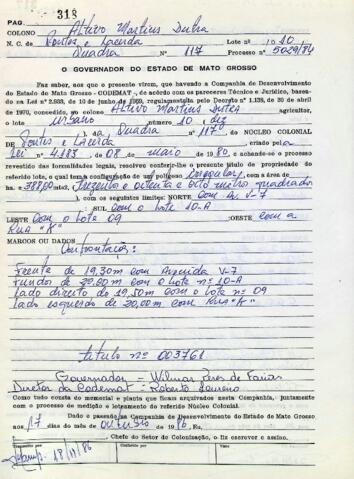 PAG. 318
COLONO Altivo Martins Dutra Lote no 10
N. C. de Pontes e Lacerda Quadra N° 117 Processo n° 5029/84
O GOVERNADOR DO ESTADO DE MATO GROSSO
Faz saber, aos que o presente virem, que havendo a Companhia de Desenvolvimento
do Estado de Mato Grosso - CODEMAT -, de acordo com os pareceres Técnico e Jurídico, basea-
dos na Lei n° de 10 de junho de regulamentada pelo Decreto n° 1.138, de 30 de abril
de 1970, concedido, ao colono Altivo Martins agricultor,
o lote Urbano número 10 dez
da Quadra 117 DO NÚCLEO COLONIAL
de Pontes e Lacerda criado pela
Lei n° 4.183 de 08 de maio de 80, e achando-se o processo
revestido das formalidades legais, resolve conferir-lhe o presente título de propriedade
do referido lote, o qual tem a configuração de um polígono irregular, com a área de
388,00 mts2, trezento e oitenta e oito metro quadrados
com os seguintes limites: NORTE com Av V-7
SUL com o lote 10-A
LESTE com o lote 09 :OESTE com a
Rua "K"
MARCOS OU DADOS
Confrontação:
Frente de 19,30 m com Avenida V-7
Fundos de 20,80 m com o lote nº 10-A
lado direito de 19,50 m com o lote nº 09
lado esquerdo de 20,00 m com Rua "K"
título nº 003761
Governador - Wilmar Peres de Farias
Diretor da Codemat - Roberto
Como tudo consta do memorial e planta que ficam arquivados nesta Companhia, juntamente
com o processo de medição e loteamento do referido Núcleo Colonial.
Dado e passado na Companhia de Desenvolvimento do Estado de Mato Grosso
aos 17 dias do mês de outubro de 1986. Eu,
, Chefe do Setor de Colonização, o fiz escrever e assino.
18/11/86